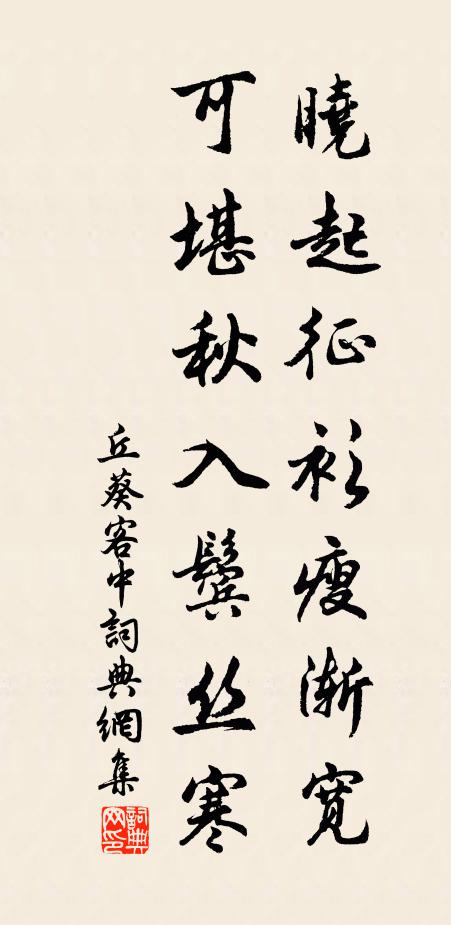 曉起征衫瘦漸寬
可堪秋入鬢丝寒
丘葵客中詞典網集
詞典网印